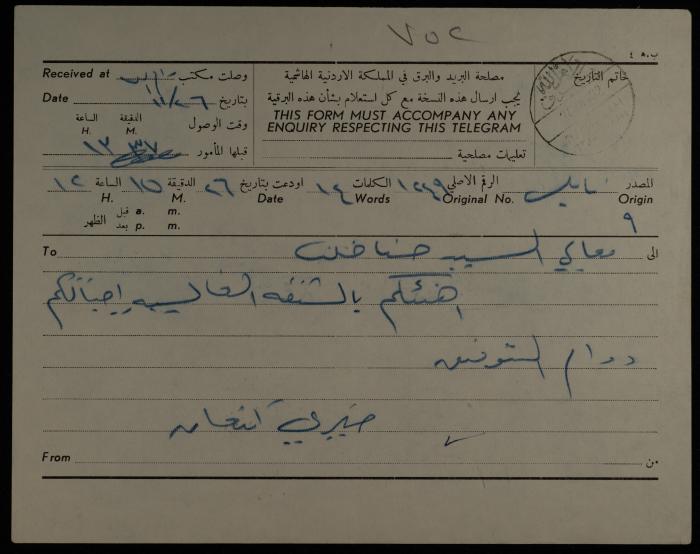 ٧٥٢
ب.ه ٤
Received at وصلت مكتب
Date بتاريخ ١١/٢٦
الساعة الدقيقة
H. M. وقت الوصول
١٣ ٣٧ قبلها المأمور
مصلحة البريد والبرق في المملكة الاردنية الهاشمية
يجب ارسال هذه النسخة مع كل استعلام بشأن هذه البرقية
THIS FORM MUST ACCOMPANY ANY
ENQUIRY RESPECTING THIS TELEGRAM
تعليمات مصلحية
خاتم التاريخ
المصدر نابلس الرقم الاصلي ١٢٤٩ الكلمات ١٤ اودعت بتاريخ ٢٦ الدقيقة ١٥ الساعة ١٢
Origin Original No. Words Date M. H.
٩
قبل a. m.
بعد p. m. الظهر
To معالي السيد حنا خلف الى
اهنئكم بالثقة الغالية
دوام التوفيق
خيري
From من